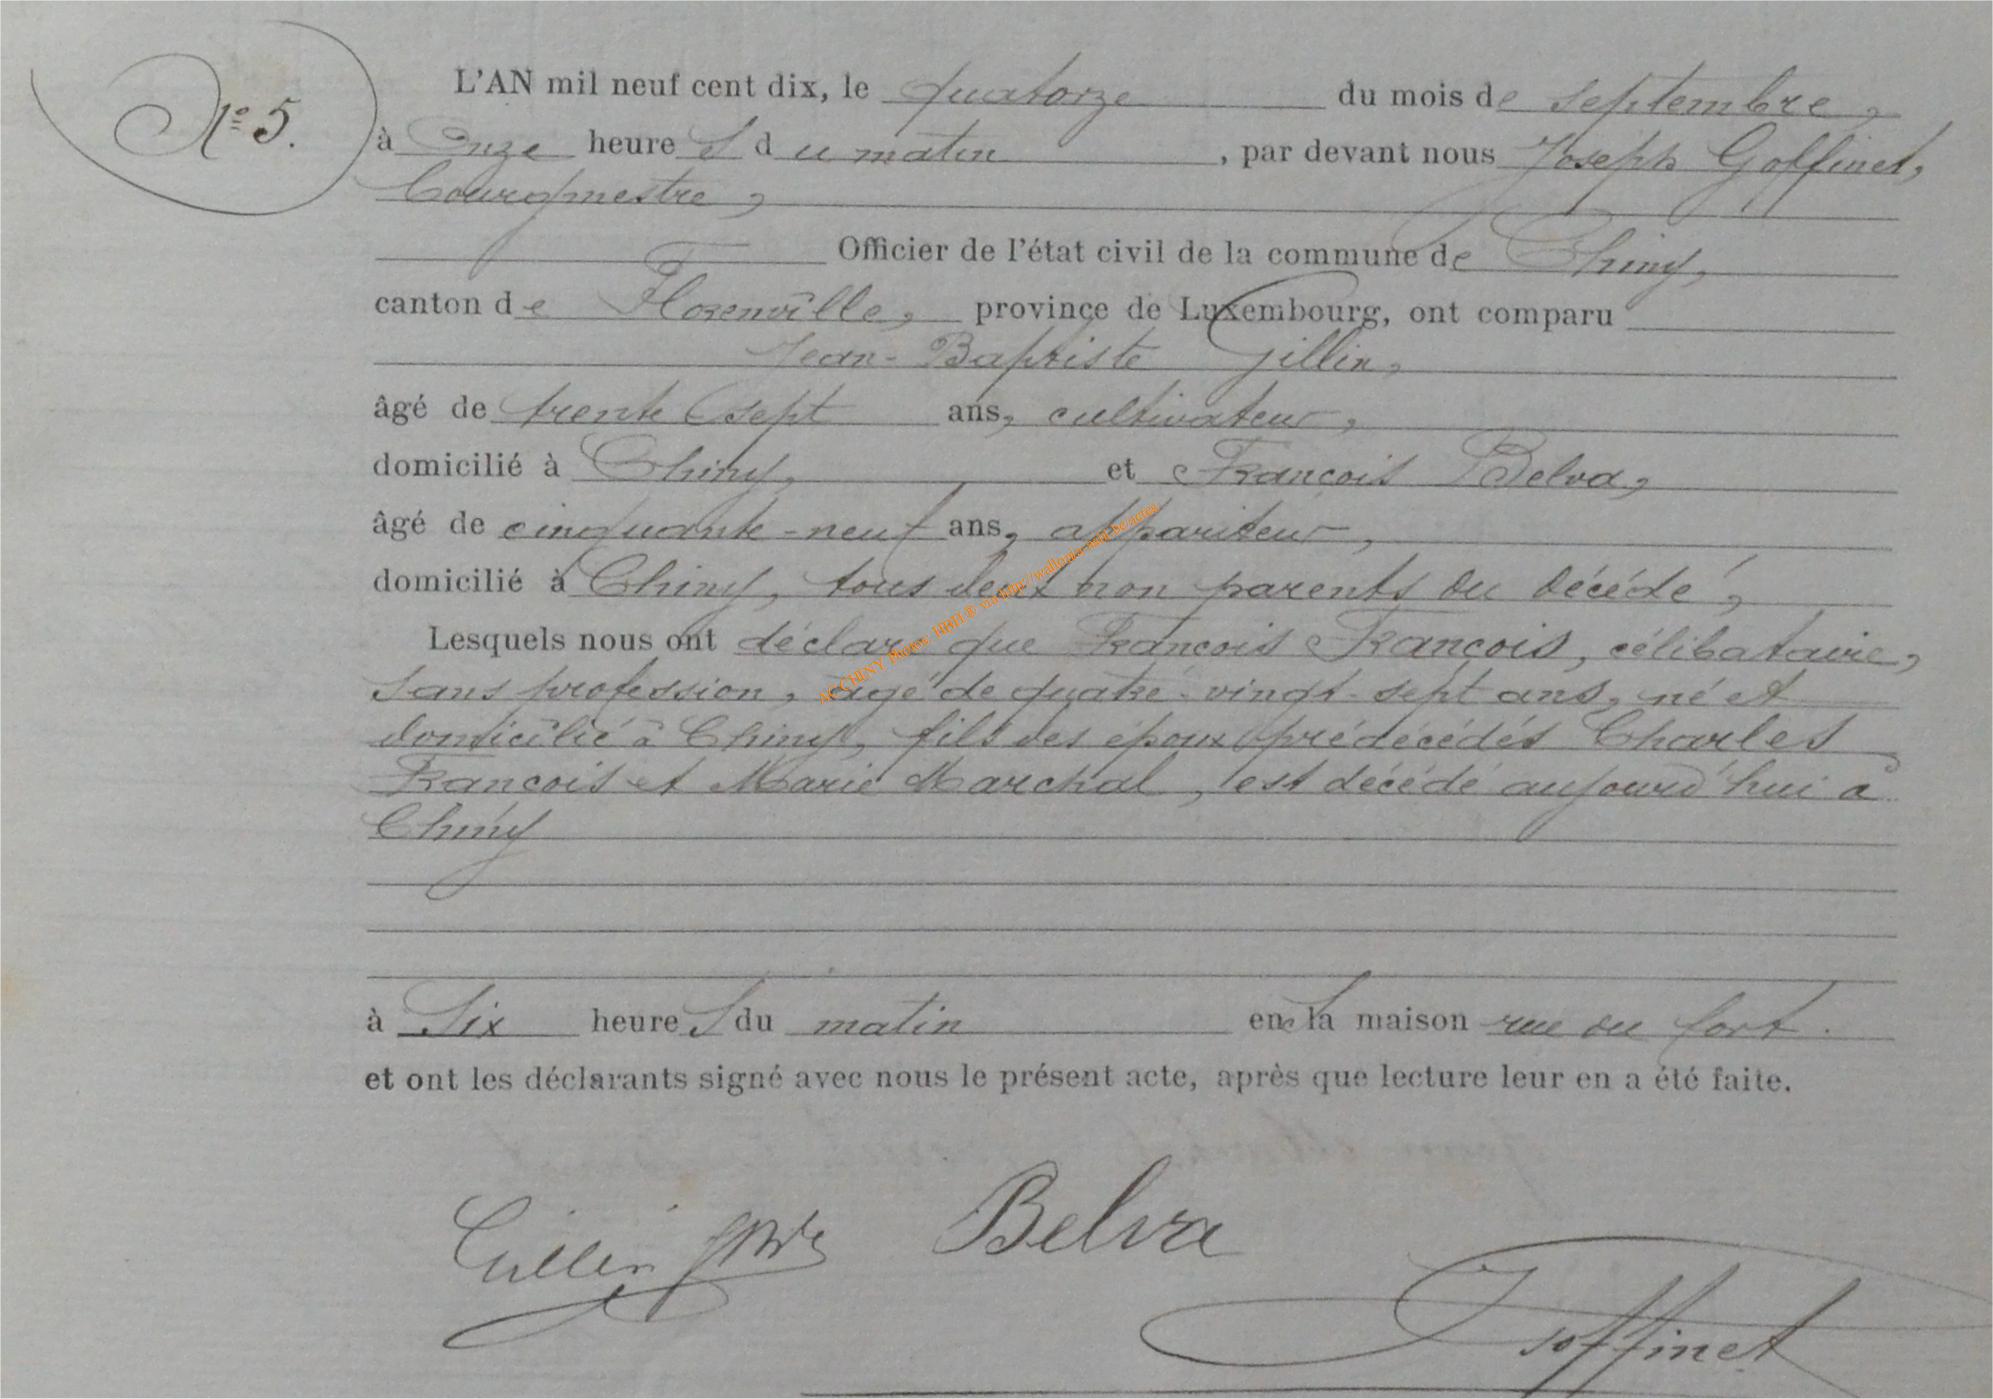 N° 5.
L'AN mil neuf cent dix, le quatorze du mois de septembre,
à onze heures du matin, par devant nous Joseph Goffinet,
bourgmestre,
Officier de l'état civil de la commune de Chiny,
canton de Florenville, province de Luxembourg, ont comparu
Jean-Baptiste Gillin,
âgé de trente sept ans, cultivateur,
domicilié à Chiny, et François Belva,
âgé de cinquante-neuf ans, appariteur,
domicilié à Chiny, tous deux non parents du décédé,
Lesquels nous ont déclaré que François François, célibataire,
sans profession, âgé de quatre-vingt-sept ans, né et
domicilié à Chiny, fils des époux prédécédés Charles
François et Marie Marchal, est décédé aujourd'hui à
Chiny
à six heures du matin en sa maison rue du fort.
et ont les déclarants signé avec nous le présent acte, après que lecture leur en a été faite.
Gillin JBte Belva
Goffinet